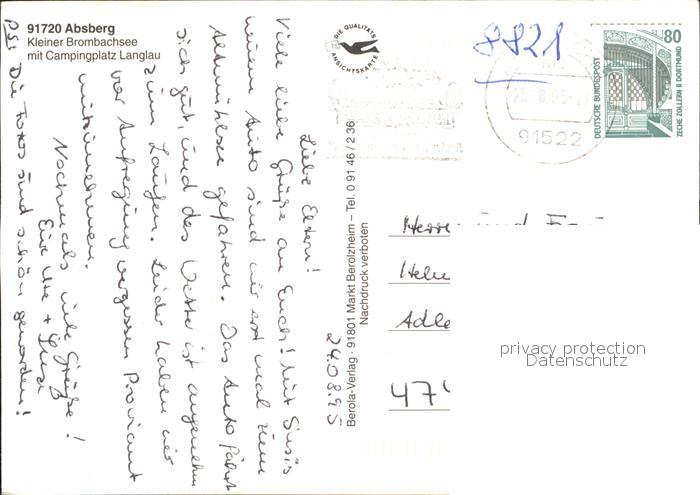 91720 Absberg
Kleiner Brombachsee
mit Campingplatz Langlau
DIE QUALITÄTS
ANSICHTSKARTE
8821
80
DEUTSCHE BUNDESPOST
ZECHE ZOLLERN II DORTMUND
-8.95-
91522
24.08.95
Liebe Eltern!
Viele liebe Grüße an Euch! Mit Susis
neuem Auto sind wir erst mal zum
Altmühlsee gefahren. Das Auto fährt
sich gut, und das Wetter ist angenehm
zum Laufen. Leider haben wir
vor Aufregung vergessen Proviant
mitzunehmen.
Nochmals viele Grüße!
Eure Ute +
PS: Die Fotos sind schön geworden!
Berola-Verlag · 91801 Markt Berolzheim – Tel. 0 91 46 / 2 36
Nachdruck verboten
Herrn und
Helm
Adle
474
privacy protection
Datenschutz